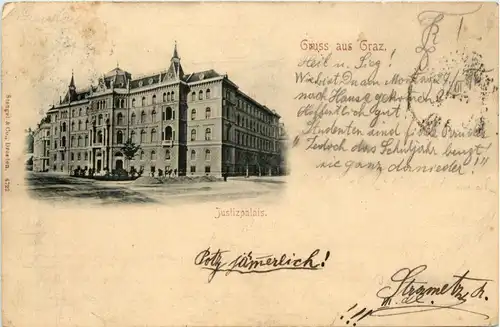 Gruss aus Graz.
Heil u. Sieg!
Wie bist Du am Montag
nach Hause gekommen?
Hoffentlich gut!
"Studenten sind
Jedoch das Schuljahr beugt
sie ganz darnieder!"
Justizpalais.
Potz jämerlich!
Strametz
Stengel & Co., Dresden. 4799